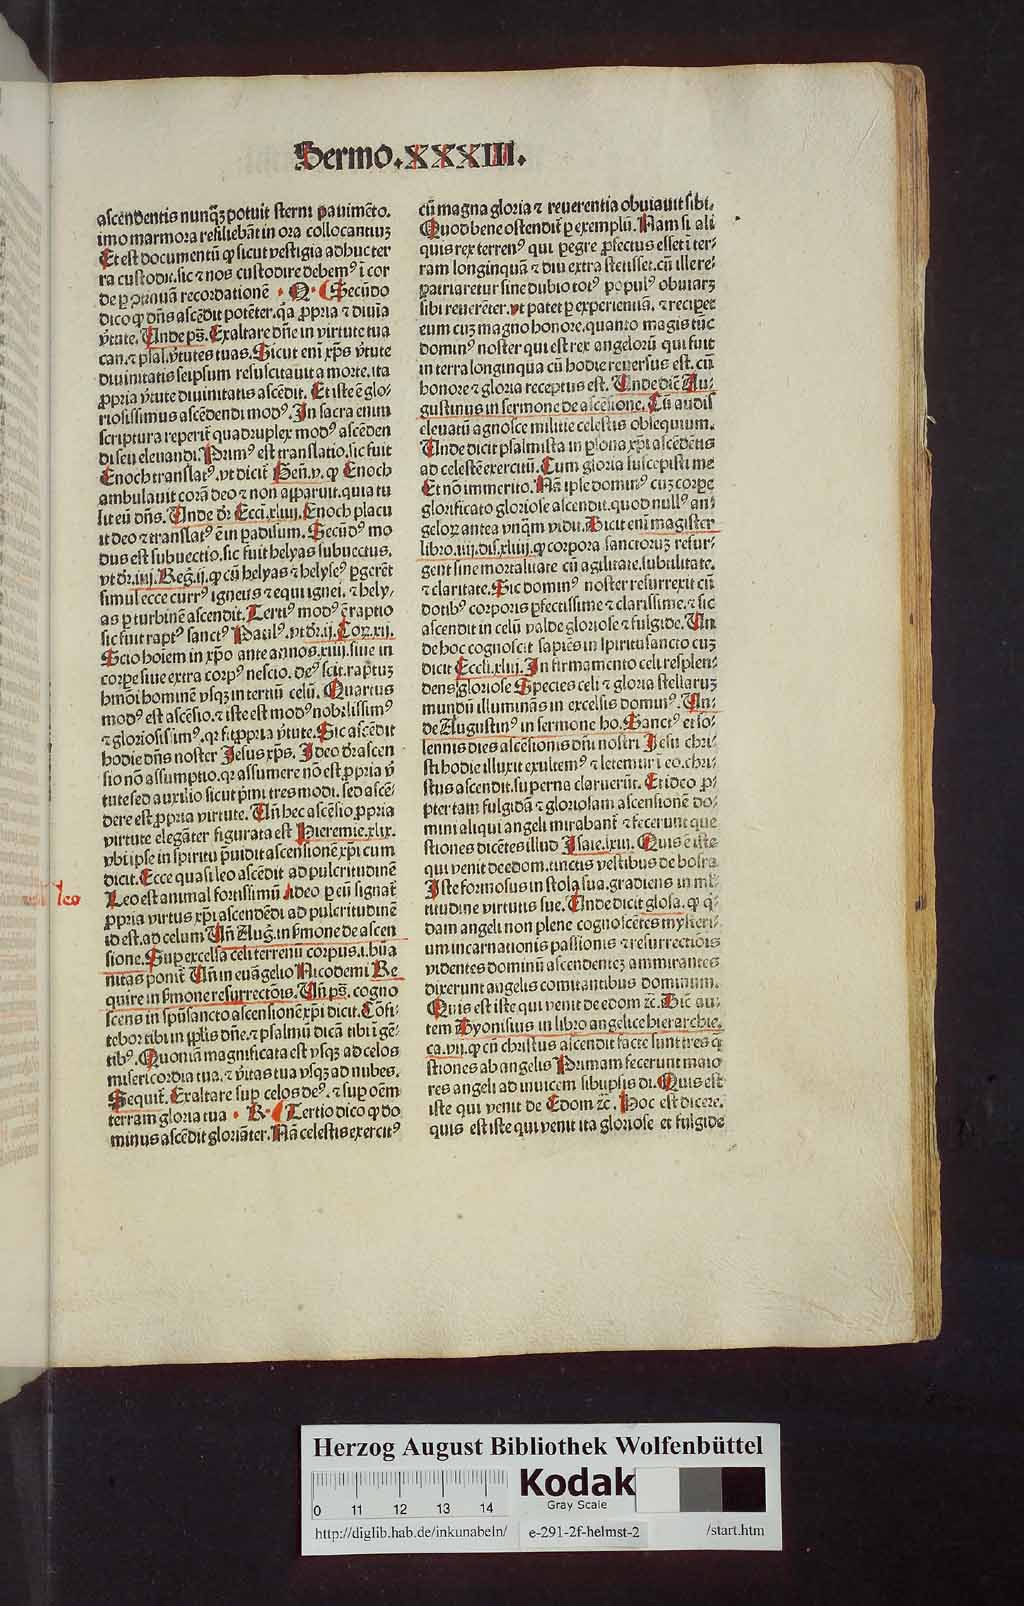 Sermo.XXXIII.
ascendentis nunq̃ꝫ potuit sterni pauimẽto.
imo marmora resiliebãt in ora collocantiuꝫ
Et est documentũ ꝙ sicut vestigia adhuc ter
ra custodit. sic ⁊ nos custodire debemꝰ ĩ cor
de ꝑ recordationẽ · Q · Secũdo
dico ꝙ dñs ascẽdit potẽter. q̃a ꝓpria ⁊ diuia
v̓tute. Unde ps̃. Exaltare dñe in virtute tua
can. ⁊ psal. v̓tutes tuas. Sicut eni xp̃s v̓tute
diuinitatis seipsum resuscitauit a morte. ita
ꝓpria v̓tute diuinitatis ascẽdit. Et iste ẽ glo⸗
riosissimus ascẽdendi modꝰ. In sacra enim
scriptura reperit᷑ quadruplex modꝰ ascẽden
di seu eleuandi. Primꝰ est translatio. sic fuit
Enoch translatꝰ. vt dicit᷑ Geñ. v. ꝙ Enoch
ambulauit corã deo ⁊ nõ apparuit. quia tu
lit eũ dñs. Unde dr̃ Ecci. xliiij. Enoch placu
it deo ⁊ translatꝰ ẽ in padisum. Secũdꝰ mo
dus est subuectio. sic fuit helyas subuectus.
vt dr̃. iiij. Reg̃. ij. ꝙ cũ helyas ⁊ helyseꝰ ꝑgerẽt
simul ecce currꝰ igneus ⁊ equi ignei. ⁊ hely⸗
as ꝑ turbinẽ ascendit. Tertiꝰ modꝰ ẽ raptio
sic fuit raptꝰ sanctꝰ Paulꝰ. vt dr̃. ij. Coꝝ. xij.
Scio hoĩem in xp̃o ante annos. xiiij. siue in
corpe siue extra corpꝰ nescio. deꝰ scit. raptuꝫ
hmõi hominẽ vsqꝫ in tertiũ celũ. Quartus
modꝰ est ascẽsio. ⁊ iste est modꝰ nobilissimꝰ
⁊ gloriosissimꝰ. qꝛ fit ꝓpria v̓tute. Sic ascẽdit
hodie dñs noster Jesus xp̃s. Ideo dr̃ ascen
sio nõ assumptio. qꝛ assumere nõ est ꝓpria v̓
tute sed auxilio sicut p̃mi tres modi. sed ascẽ⸗
dere est ꝓpria virtute. Uñ hec ascẽsio ꝓpria
virtute elegãter figurata est Hieremie. xlix.
vbi ipse in spiritu p̃uidit ascensionẽ xp̃i cum
dicit. Ecce quasi leo ascẽdit ad pulcritudinẽ
leo
Leo est animal fortissimũ Ideo ꝑ eũ signat᷑
ꝓpria virtus xp̃i ascendẽdi ad pulcritudinẽ
id est. ad celum Uñ Aug̃. in s̃mone de ascen
sione. Suꝑ excelsa celi terrenũ corpus. i. hũa
nitas ponit᷑ Uñ in euãgelio Nicodemi Re
quire in s̃mone resurrectõis. Uñ ps̃. cogno
scens in spũsancto ascensionẽ xp̃i dicit. Cõfi⸗
tebor tibi in pp̃lis dñe. ⁊ psalmũ dicã tibi ĩ gẽ⸗
tibꝰ. Quoniã magnificata est vsqꝫ ad celos
misericordia tua. ⁊ v̓itas tua vsqꝫ ad nubes.
Sequit᷑. Exaltare suꝑ celos deꝰ. ⁊ suꝑ oẽm
terram gloria tua · R · Tertio dico ꝙ do
minus ascẽdit gloriãter. Nã celestis exercitꝰ
cũ magna gloria ⁊ reuerentia obuiauit sibi.
Quod bene ostendit᷑ ꝑ exemplũ. Nam si ali
quis rex terrenꝰ qui pegre ꝓfectus esset ĩ ter⸗
ram longinquã ⁊ diu extra stetisset. cũ ille re⸗
patriaretur sine dubio totꝰ populꝰ obuiaꝝ
sibi reuerẽter. vt patet ꝑ experientiã. ⁊ recipet
eum cuꝫ magno honore. quanto magis tũc
dominꝰ noster qui est rex angeloꝝ qui fuit
in terra longinqua cũ hodie reuersus est. cũ
honore ⁊ gloria receptus est. Unde diẽ Au⸗
gustinus in sermone de ascẽsione. Cũ audis
eleuatũ agnosce militie celestis obsequium.
Unde dicit psalmista in ꝑsona xp̃i ascẽdẽtis
ad celestẽ exercitũ. Cum gloria suscepisti me
Et nõ immerito. Nã ipse dominꝰ cuꝫ corpe
glorificato gloriose ascendit. quod nullꝰ an⸗
geloꝝ antea vnq̃m vidit. Dicit eni magister
libro. iiij. dis. xliiij. ꝙ corpora sanctoruꝫ resur⸗
gent sine mortalitate cũ agilitate. subtilitate.
⁊ claritate. Sic dominꝰ noster resurrexit cũ
dotibꝰ corporis ꝑfectissime ⁊ clarissime. ⁊ sic
ascendit in celũ valde gloriose ⁊ fulgide. Uñ
de hoc cognoscit sapiẽs in spiritusancto cuꝫ
dicit Eccli. xliij. In firmamento celi resplen⸗
dens gloriose Species celi ⁊ gloria stellaruꝫ
mundũ illuminãs in excelsis dominꝰ. Un⸗
de Augustinꝰ in sermone ho. Sanctꝰ et so⸗
lennis dies ascẽsionis dñi nostri Jesu chri⸗
sti hodie illuxit exultemꝰ ⁊ letemur ĩ eo. chri⸗
stus ascendit. superna claruerũt. Et ideo ꝓ⸗
pter tam fulgidã ⁊ gloriosam ascensionẽ do⸗
mini aliqui angeli mirabant᷑ ⁊ fecerunt que
stiones dicẽtes illud Isaie. lxiii. Quis ẽ iste
qui venit de edom. tinctis vestibus de bosra
Iste formosus in stola sua. gradiens in ml̃
titudine virtutis sue. Unde dicit glosa. ꝙ q̇⸗
dam angeli non plene cognoscẽtes mysteri⸗
um incarnationis passionis ⁊ resurrectiõis
videntes dominũ ascendenteꝫ ammirantes
dixerunt angelis comitantibus dominum.
Quis est iste qui venit de edom ⁊c̃. Sic au⸗
tem Dyonisius in libro angelice hierarchie.
ca. vij. ꝙ cũ christus ascendit facte sunt tres q̃
stiones ab angelis Primam fecerunt maio
res angeli ad inuicem sibiipsis di. Quis est
iste qui venit de Edom ⁊c̃. Hoc est dicere.
quis est iste qui venit ita gloriose et fulgide
Herzog August Bibliothek Wolfenbüttel
0 11 12 13 14
Kodak
Gray Scale
http://diglib.hab.de/inkunabeln/ e-291-2f-helmst-2 /start.htm